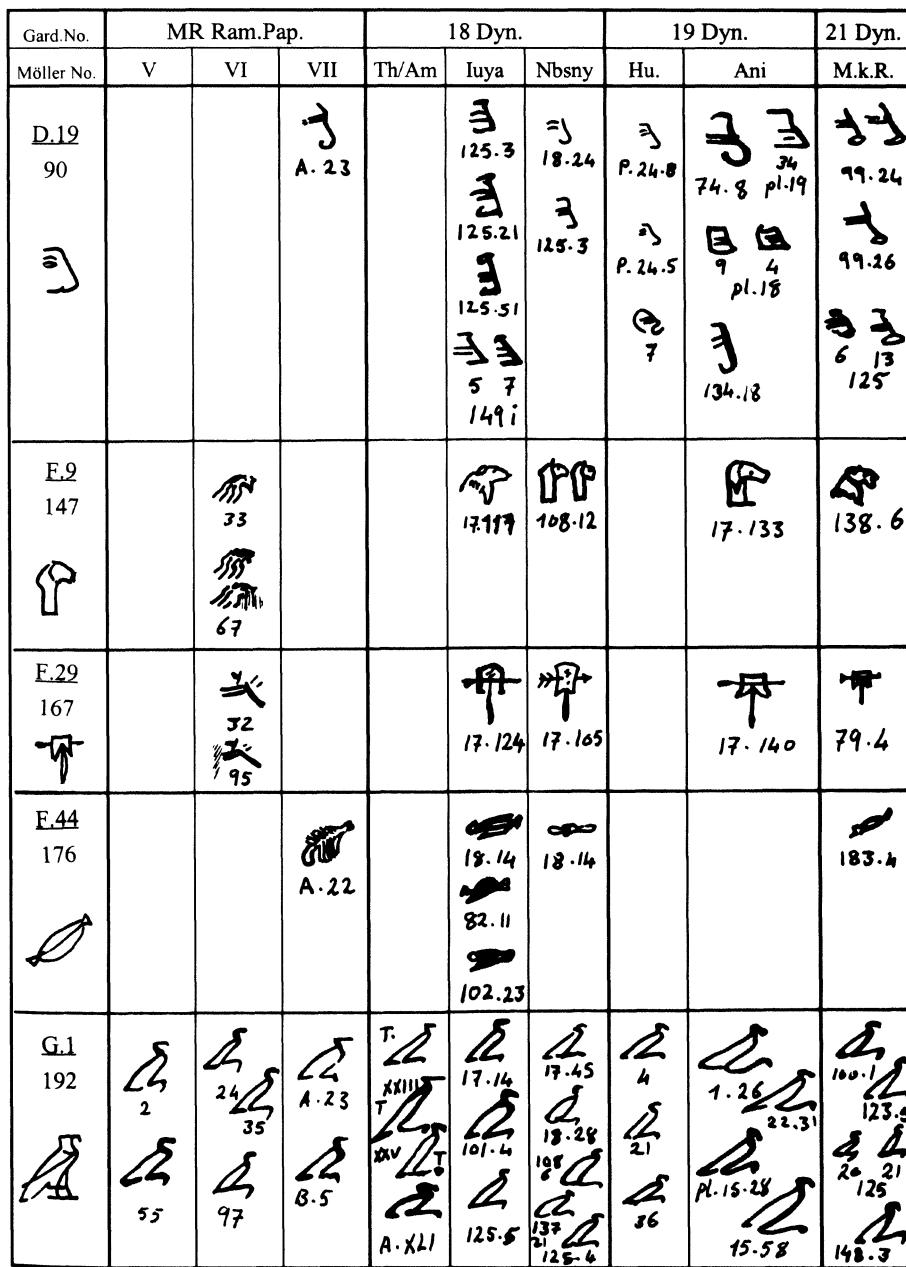 Gard.No. MR Ram.Pap. 18 Dyn. 19 Dyn. 21 Dyn.
Möller No. V VI VII Th/Am Iuya Nbsny Hu. Ani M.k.R.
D.19
90
A.23
125.3
125.21
125.51
5 7
149 i
18.24
125.3
P.24.8
P.24.5
7
74.8
34
pl.19
9 4
pl.18
134.18
99.24
99.26
6 13
125
F.9
147
33
67
108.12
17.133
138.6
F.29
167
32
95
17.124
17.105
17.140
79.4
F.44
176
A.22
18.14
82.11
102.23
18.14
183.4
G.1
192
2
55
24
35
97
A.23
B.5
T.
XXIII
T
XXV
T
A.XLI
17.14
101.4
125.5
17.45
18.28
108
6
137
21
125.4
4
21
36
1.26
22.31
pl.15-28
15.58
100.1
123.5
20 21
125
148.3